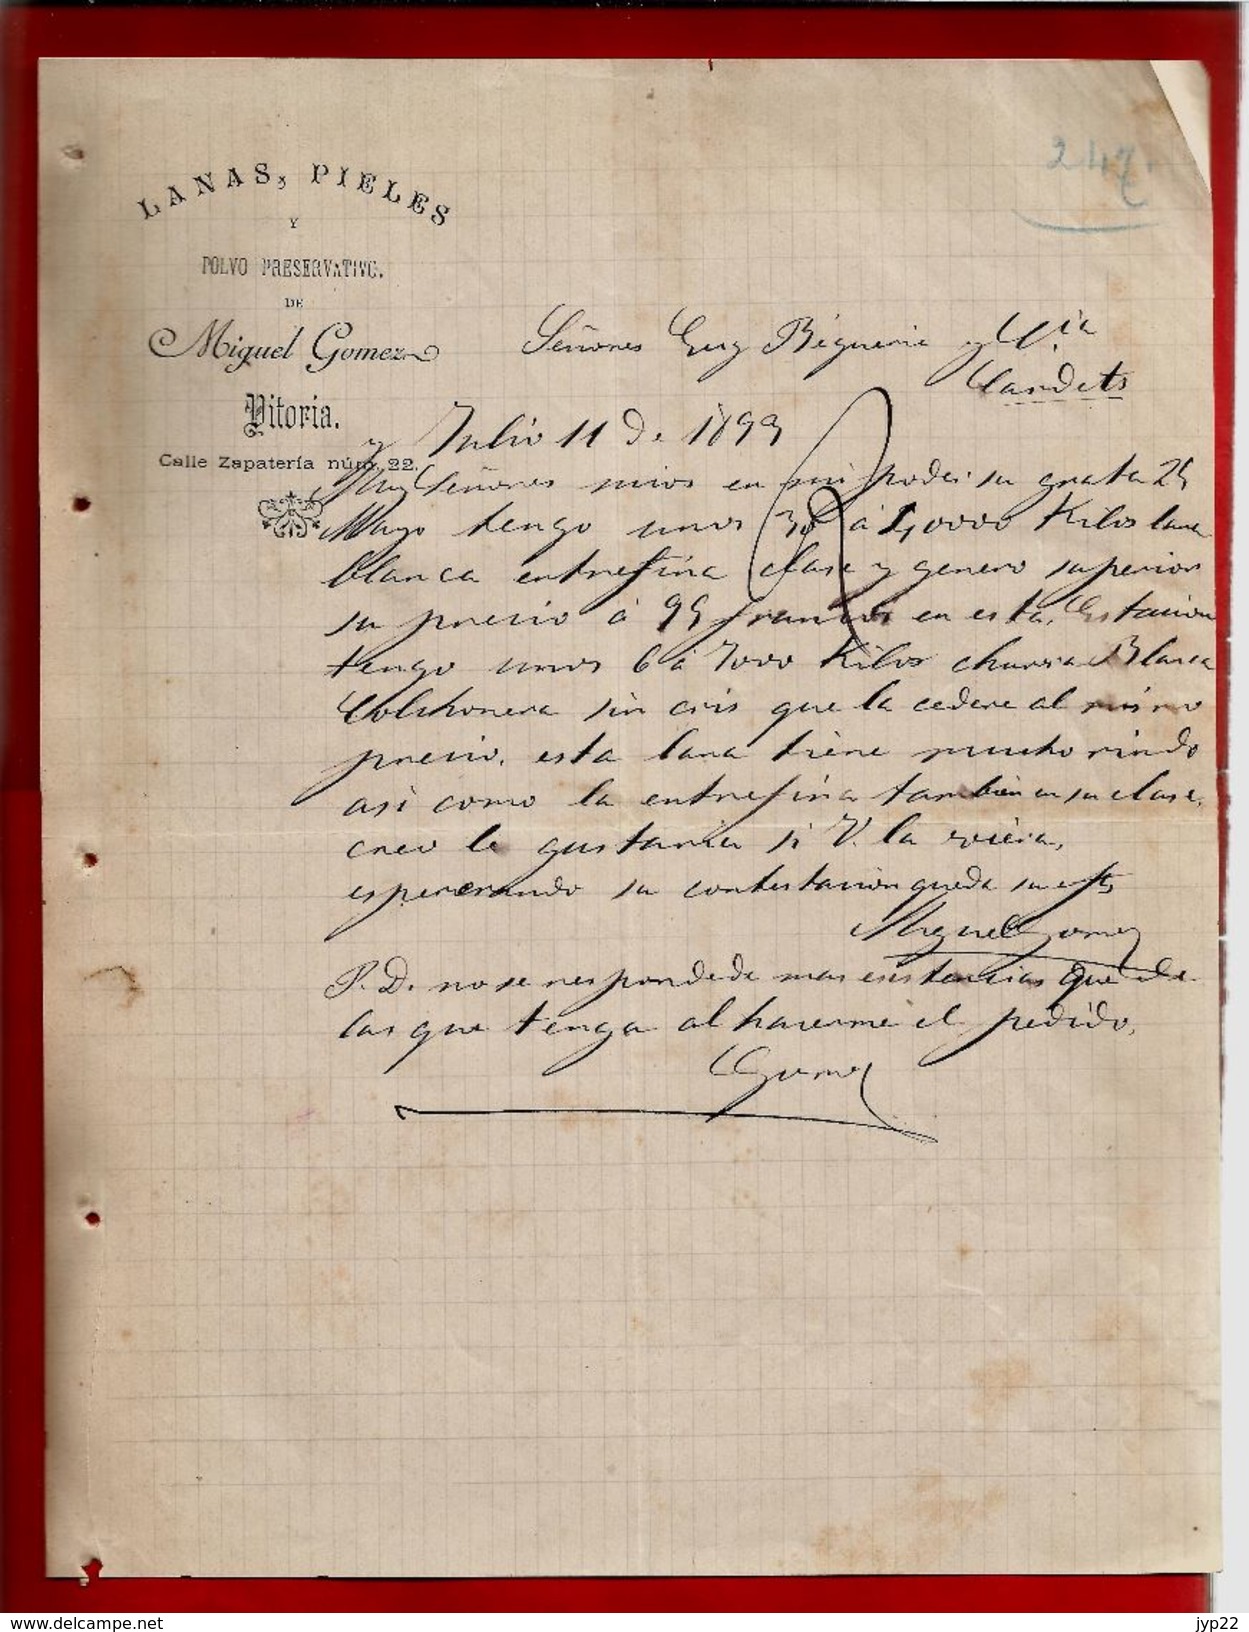 LANAS, PIELES
Y
POLVO PRESERVATIVO.
DE
Miguel Gomez
Vitoria.
Calle Zapatería núm. 22.
247.
Señores Guy Béguerie y Cia
Candets
y Julio 11 de 1899
Muy Señores mios en mi poder su grata 25
Mayo tengo unos 30 á 40000 Kilos lana
blanca entrefina clase y genero superior
su precio á 95 francos en esta Estacion
tengo unos 6 á 7000 Kilos churra Blanca
Colchonera sin cris que la cedere al mismo
precio, esta lana tiene mucho rindo
asi como la entrefina tambien en su clase,
creo le gustaria si V. la viera,
espererando su contestacion queda su
Miguel Gomez
P.D. no se respondede mas esistencias que de
las que tenga al hacerme el pedido,
Gomez
www.delcampe.net
jyp22